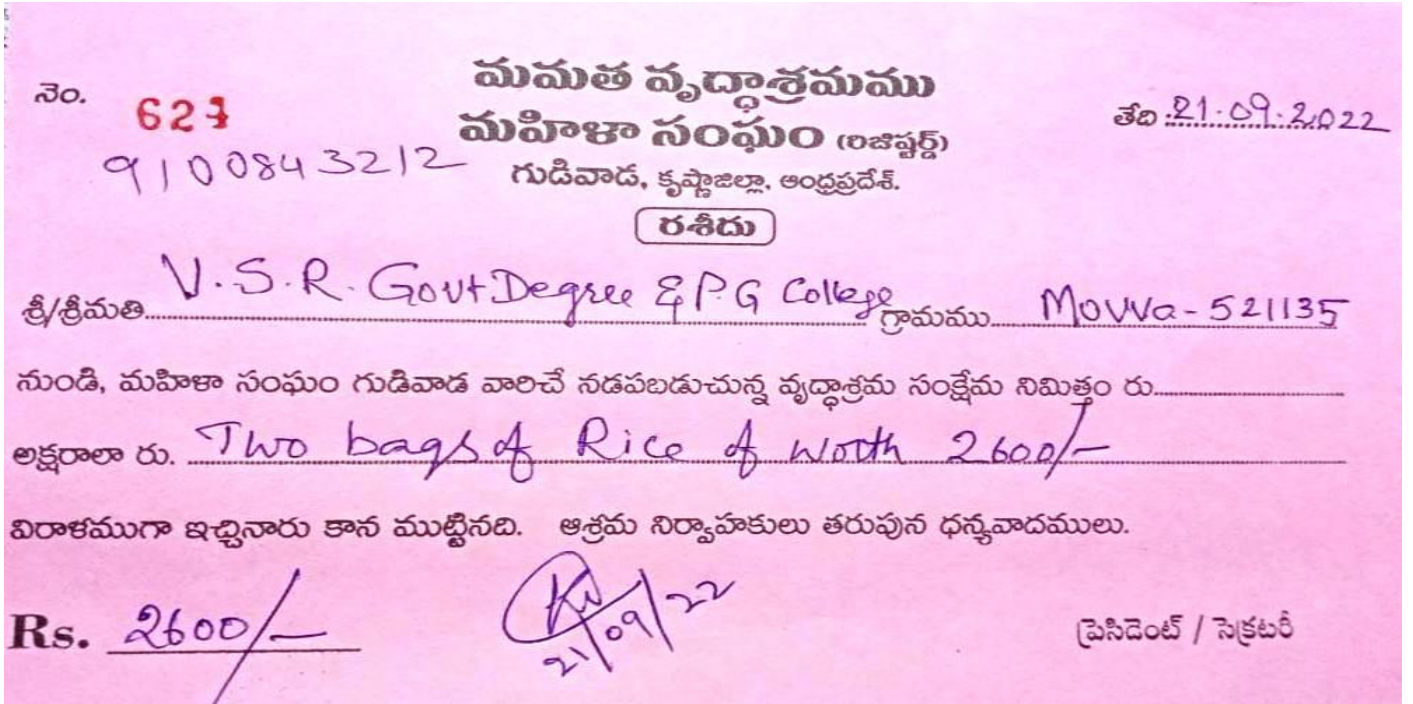 మమత వృద్ధాశ్రమము
నెం. తేది :21.09.2022
మహిళా సంఘం (రిజిష్టర్డ్)
9100843212
గుడివాడ, కృష్ణాజిల్లా, ఆంధ్రప్రదేశ్.
రశీదు
శ్రీ/శ్రీమతి V.S.R. Govt Degree & P.G College గ్రామము Movva - 521135
నుండి, మహిళా సంఘం గుడివాడ వారిచే నడపబడుచున్న వృద్ధాశ్రమ సంక్షేమ నిమిత్తం రు.
అక్షరాలా రు. Two bags of Rice of worth 2600/-
విరాళముగా ఇచ్చినారు కాన ముట్టినది. ఆశ్రమ నిర్వాహకులు తరుపున ధన్యవాదములు.
Rs. 2600/- 21/09/22
ప్రెసిడెంట్ / సెక్రటరీ